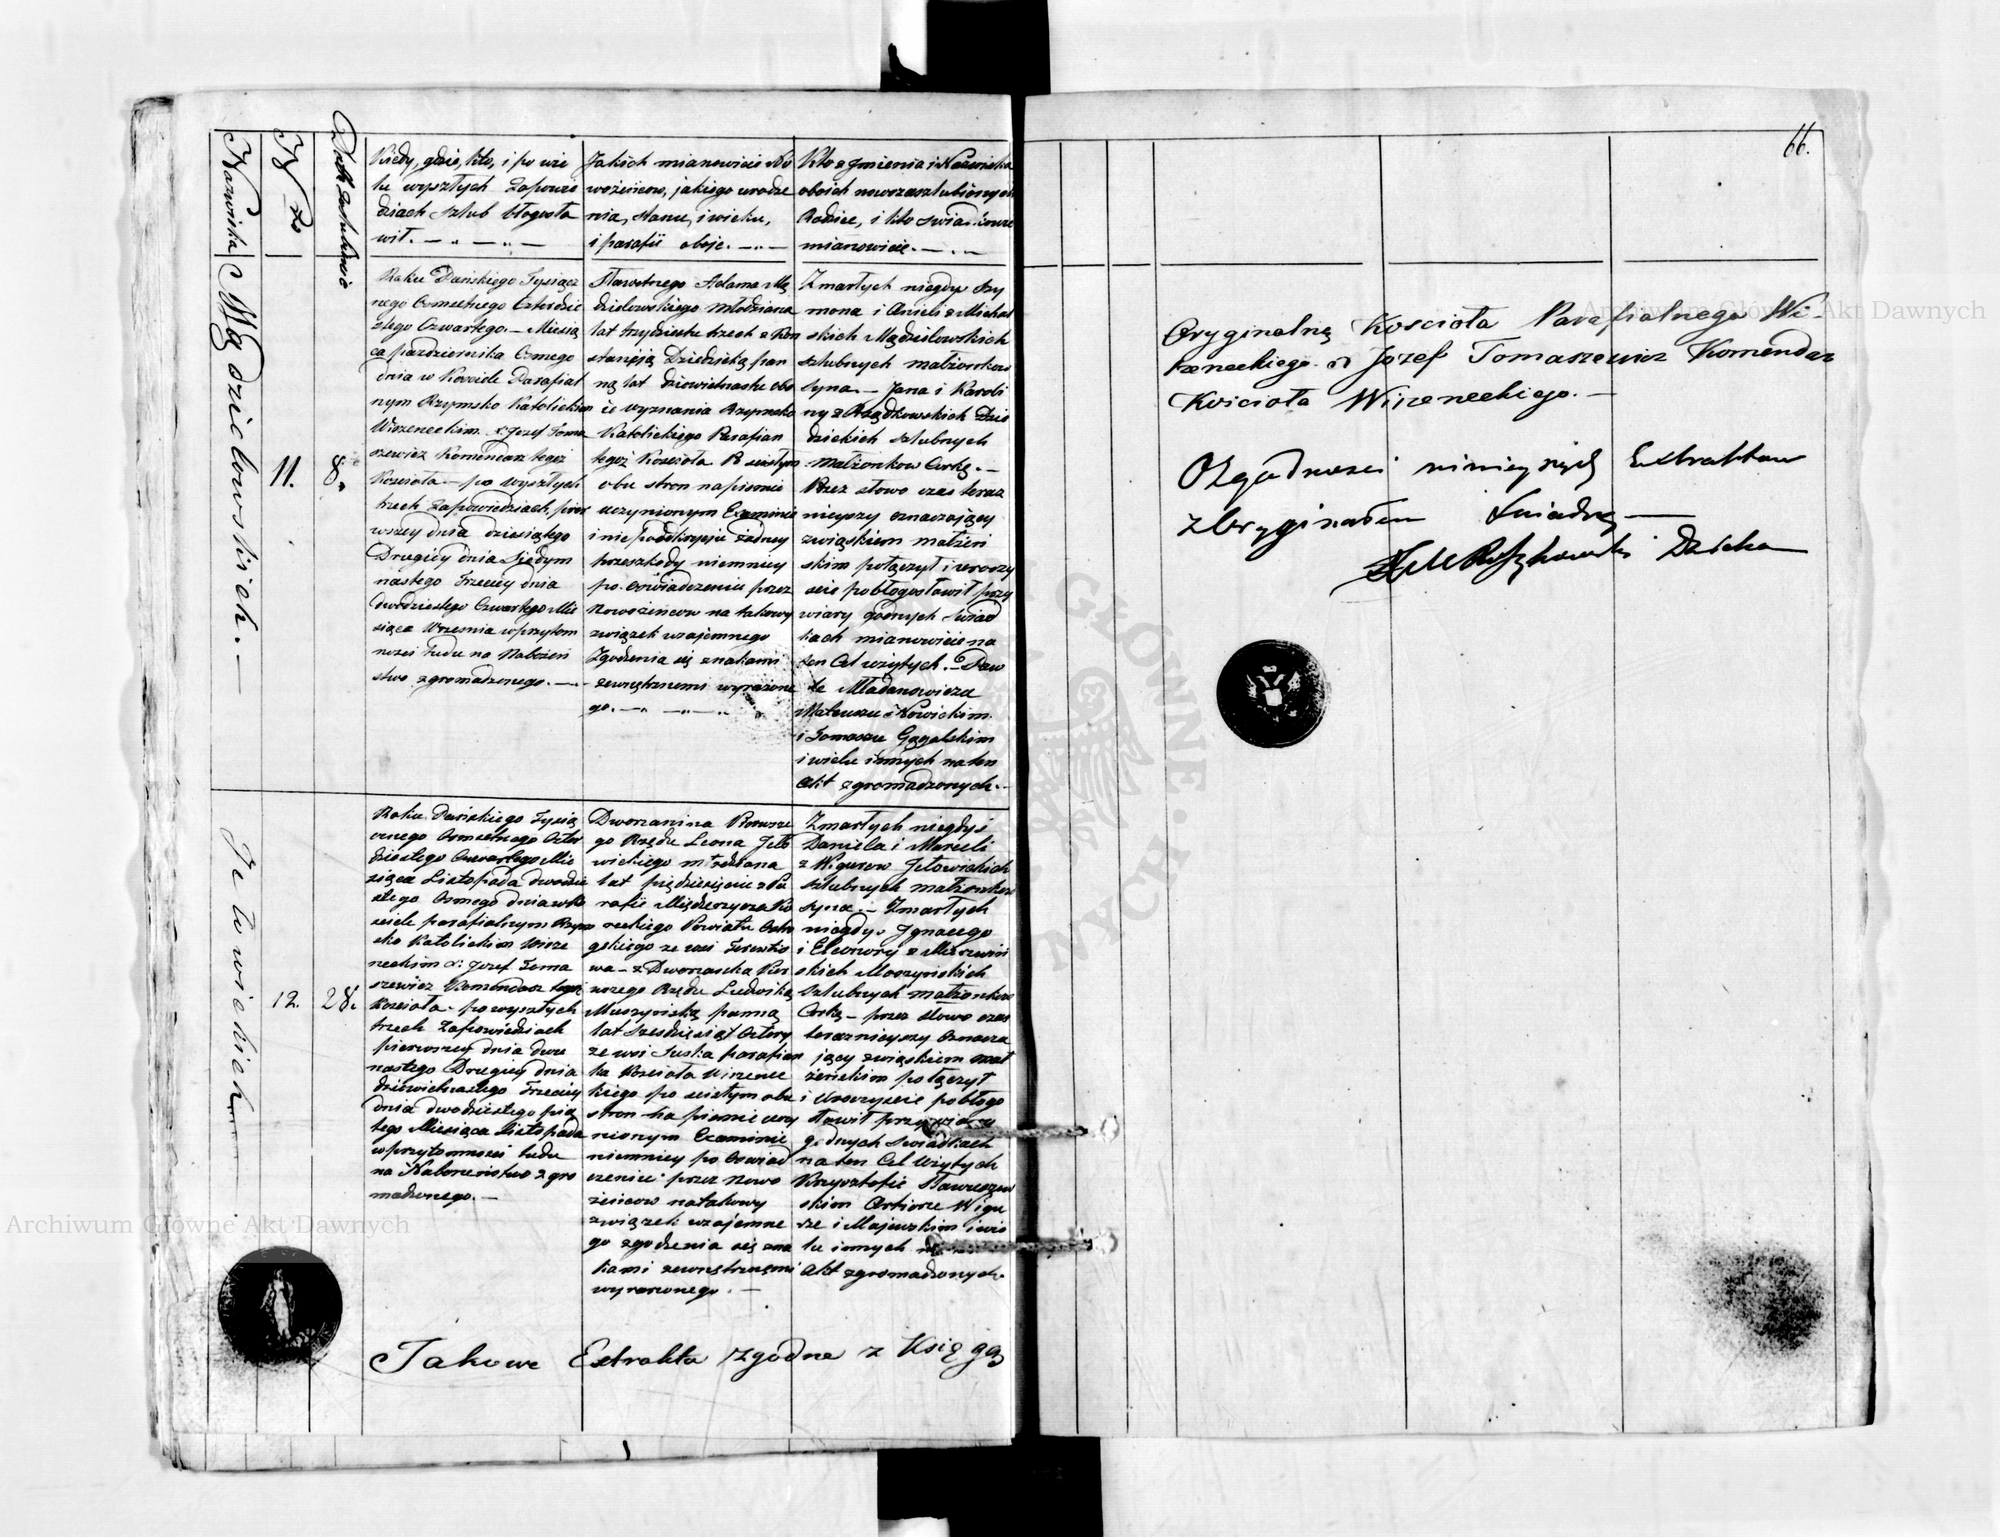 Nazwiska
N-ro
Kiedy, gdzie, kto, i po wie
lu wyszłych Zapowie
dziach szlub błogosła
wił.
Jakich mianowicie No
wożeńcow, jakiego urodze
nia, stanu, i wieku,
i parafii oboje.
Kto z Jmienia i Nazwiska
oboich nowozaszlubionych
Rodzice, i kto
mianowicie.
Mądzielowskich.
11.
8.
Roku Pańskiego Tysiącz
nego Osmsetnego Czterdzie
stego Czwartego Miesią
ca pazdziernika Osmego
dnia w Kosciele Parafial
nym Rzymsko Katolickim
Wizeneckim X. Jozef Toma
szewicz Komendarz tegoż
Kościoła po wyszłych
trzech Zapowiedziach, pier
wszey dnia dziesiątego
Drugiey dnia Siedym
nastego Trzeciey dnia
dwudziestego Czwartego Mie
siąca Wrzesnia w przytom
nosci ludu na Nabożeń
stwo zgromadzonego.
Sławetnego Adama Mą
dzielowskiego Młodziana
lat trzydziestu trzech z Kon
stancją Dziedzicką pan
ną lat dziewietnastu obo
ie wyznania Rzymsko
Katolickiego Parafian
tegoż Kosciola. Po scisłym
obu stron na pismie
uczynionym Examinie
i nie żadney
przeszkody niemniey
po Oswiadczeniu przez
Nowożeńcow na takowy
związek wzajemnego
Zgodzenia się znakami
zewnętrznemi wyrażone
go.
Zmarłych niegdys Szy
mona i Anieli z Michal
skich Mądzielowskich
szlubnych małżonkow
syna. Jana i Karoli
ny z Rządkowskich Dzie
dzickich szlubnych
małżonkow Curkę.
Przez słowo czas teraz
nieyszy oznaczający
związkiem małżeń
skim połączył i uroczy
scie pobłogosławił przy
wiary godnych swiad
kach mianowicie na
ten Cel użytych.
Mładanowicza
Mateuszu Nowickim
i Tomaszu Gągalskim
i wielu innych na ten
Akt zgromadzonych.
Jełowickich
12.
28.
Roku Pańskiego Tysią
cznego Osmsetnego Czter
dziestego Czwartego Mie
siąca Listopada dwudzie
stego Osmego dnia w Ko
sciele parafialnym Rzym
sko Katolickim Wize
neckim X. Jozef Toma
szewicz Komendarz tegoż
Kosciola po wyszłych
trzech Zapowiedziach
pierwszey dnia dwu
nastego Drugiey dnia
dziewietnastego Trzeciey
dnia dwudziestego pią
tego Miesiąca Listopada
w przytomnosci ludu
na Nabożeństwo zgro
madzonego.
Dworzanina Pierwsze
go Rzędu Leona Jeło
wickiego młodziana
lat pięćdziesięciu z Pa
rafii Międzyrzycza Ko
reckiego Powiatu Ostro
gskiego ze wsi
wa z Dworzanką Pier
wszego Rzędu Ludwiką
Muszyńską panną
lat Szesdziesiąt Cztery
ze wsi Suska parafian
ka Kosciola Wizenec
kiego po scisłym obu
stron na pismie uczy
nionym Examinie
niemniey po Oswiad
czeniu przez Nowo
żeńcow na takowy
związek wzajemne
go zgodzenia się zna
kami zewnętrznemi
wyrażonego.
Zmarłych niegdyś
Daniela i Marceli
z Wigurow Jełowickich
szlubnych małżonkow
syna. Zmarłych
niegdys Jgnacego
i Eleonory z Marzewiń
skich Moszyńskich
szlubnych małżonkow
Corkę przez słowo czas
teraznieyszy Oznacza
jący związkiem mał
żeńskim połączył
i uroczyscie pobłogo
sławił przy wiary
godnych swiadkach
na ten Cel Użytych
Krzysztofie
skim Arturze Wigu
rze i Majewskim i wie
lu innych
Akt zgromadzonych.
Takowe Extrakta zgodne z Księgą
66.
Oryginalną Kościoła Parafialnego Wi-
zeneckiego. X Jozef Tomaszewicz Komendarz
Kościoła Wizeneckiego.
O zgodnosci ninieyszych Extraktow
z Oryginałem świadczę
Dziekan
Archiwum Główne Akt Dawnych
Archiwum Główne Akt Dawnych